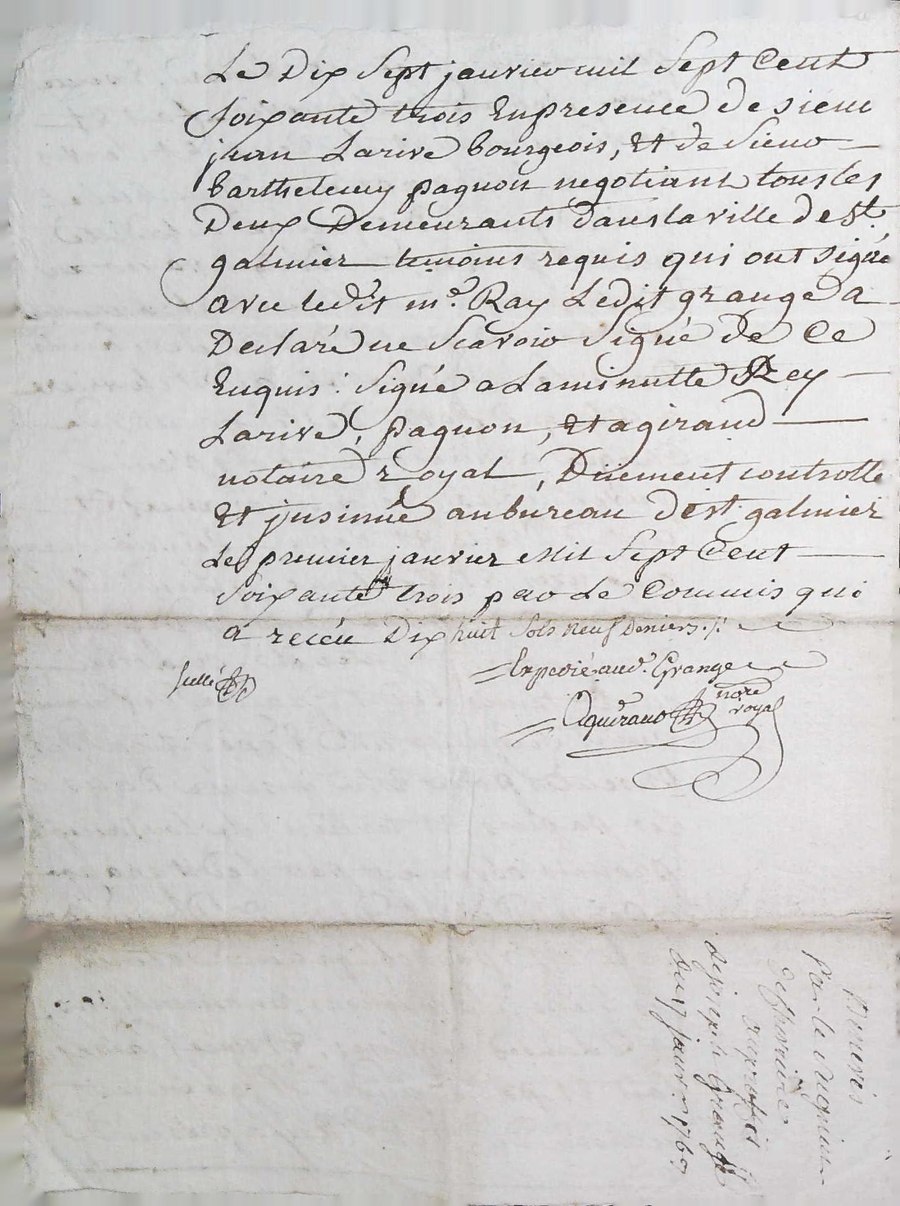 Le Dix Sept janvier mil Sept Cent
Soixante trois En presence de sieur
jean Larive bourgeois, Et de Sieur
barthelemy pagnon negotiant tous les
Deux Demeurants dans la ville de st
galmier temoins requis qui ont signé
avec ledit me. Ray Ledit grange a
Declaré ne Scavoir Signé de Ce
Enquis : Signé a La minutte Rey
Larive, pagnon, Et agiraud
notaire royal, Düement controlle
Et jnsinué au bureau de st galmier
Le premier janvier Mil Sept Cent
Soixante trois par Le Commis qui
a receu Dix huit Sols Neuf Deniers ./.
Expedié aud. Grange
scellé
Aguiraud nore royal
Par le
de
au profit
de joseph Grange
Du 17 janvr. 1763